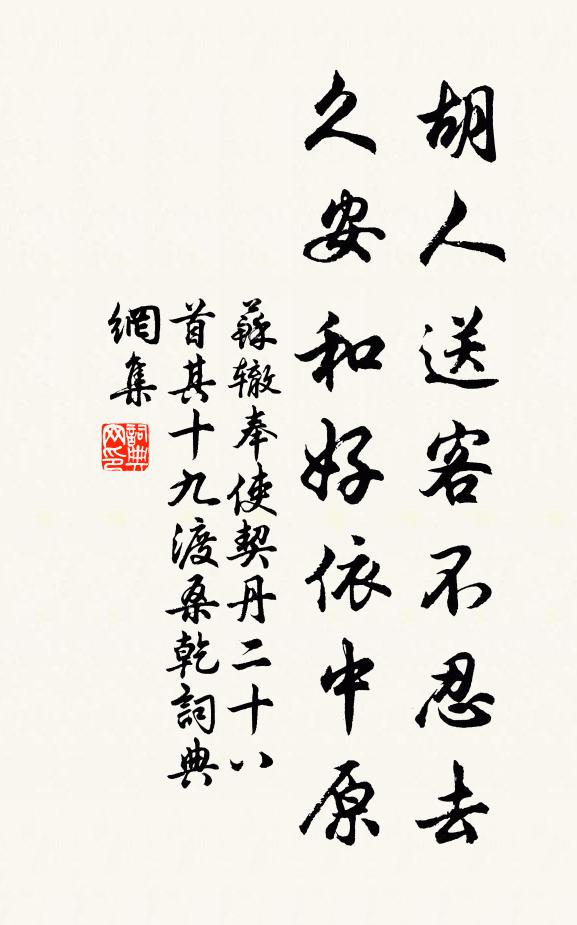 胡人送客不忍去
久安和好依中原
蘇辙奉使契丹二十八
首其十九渡桑乾詞典
網集
詞典
网印